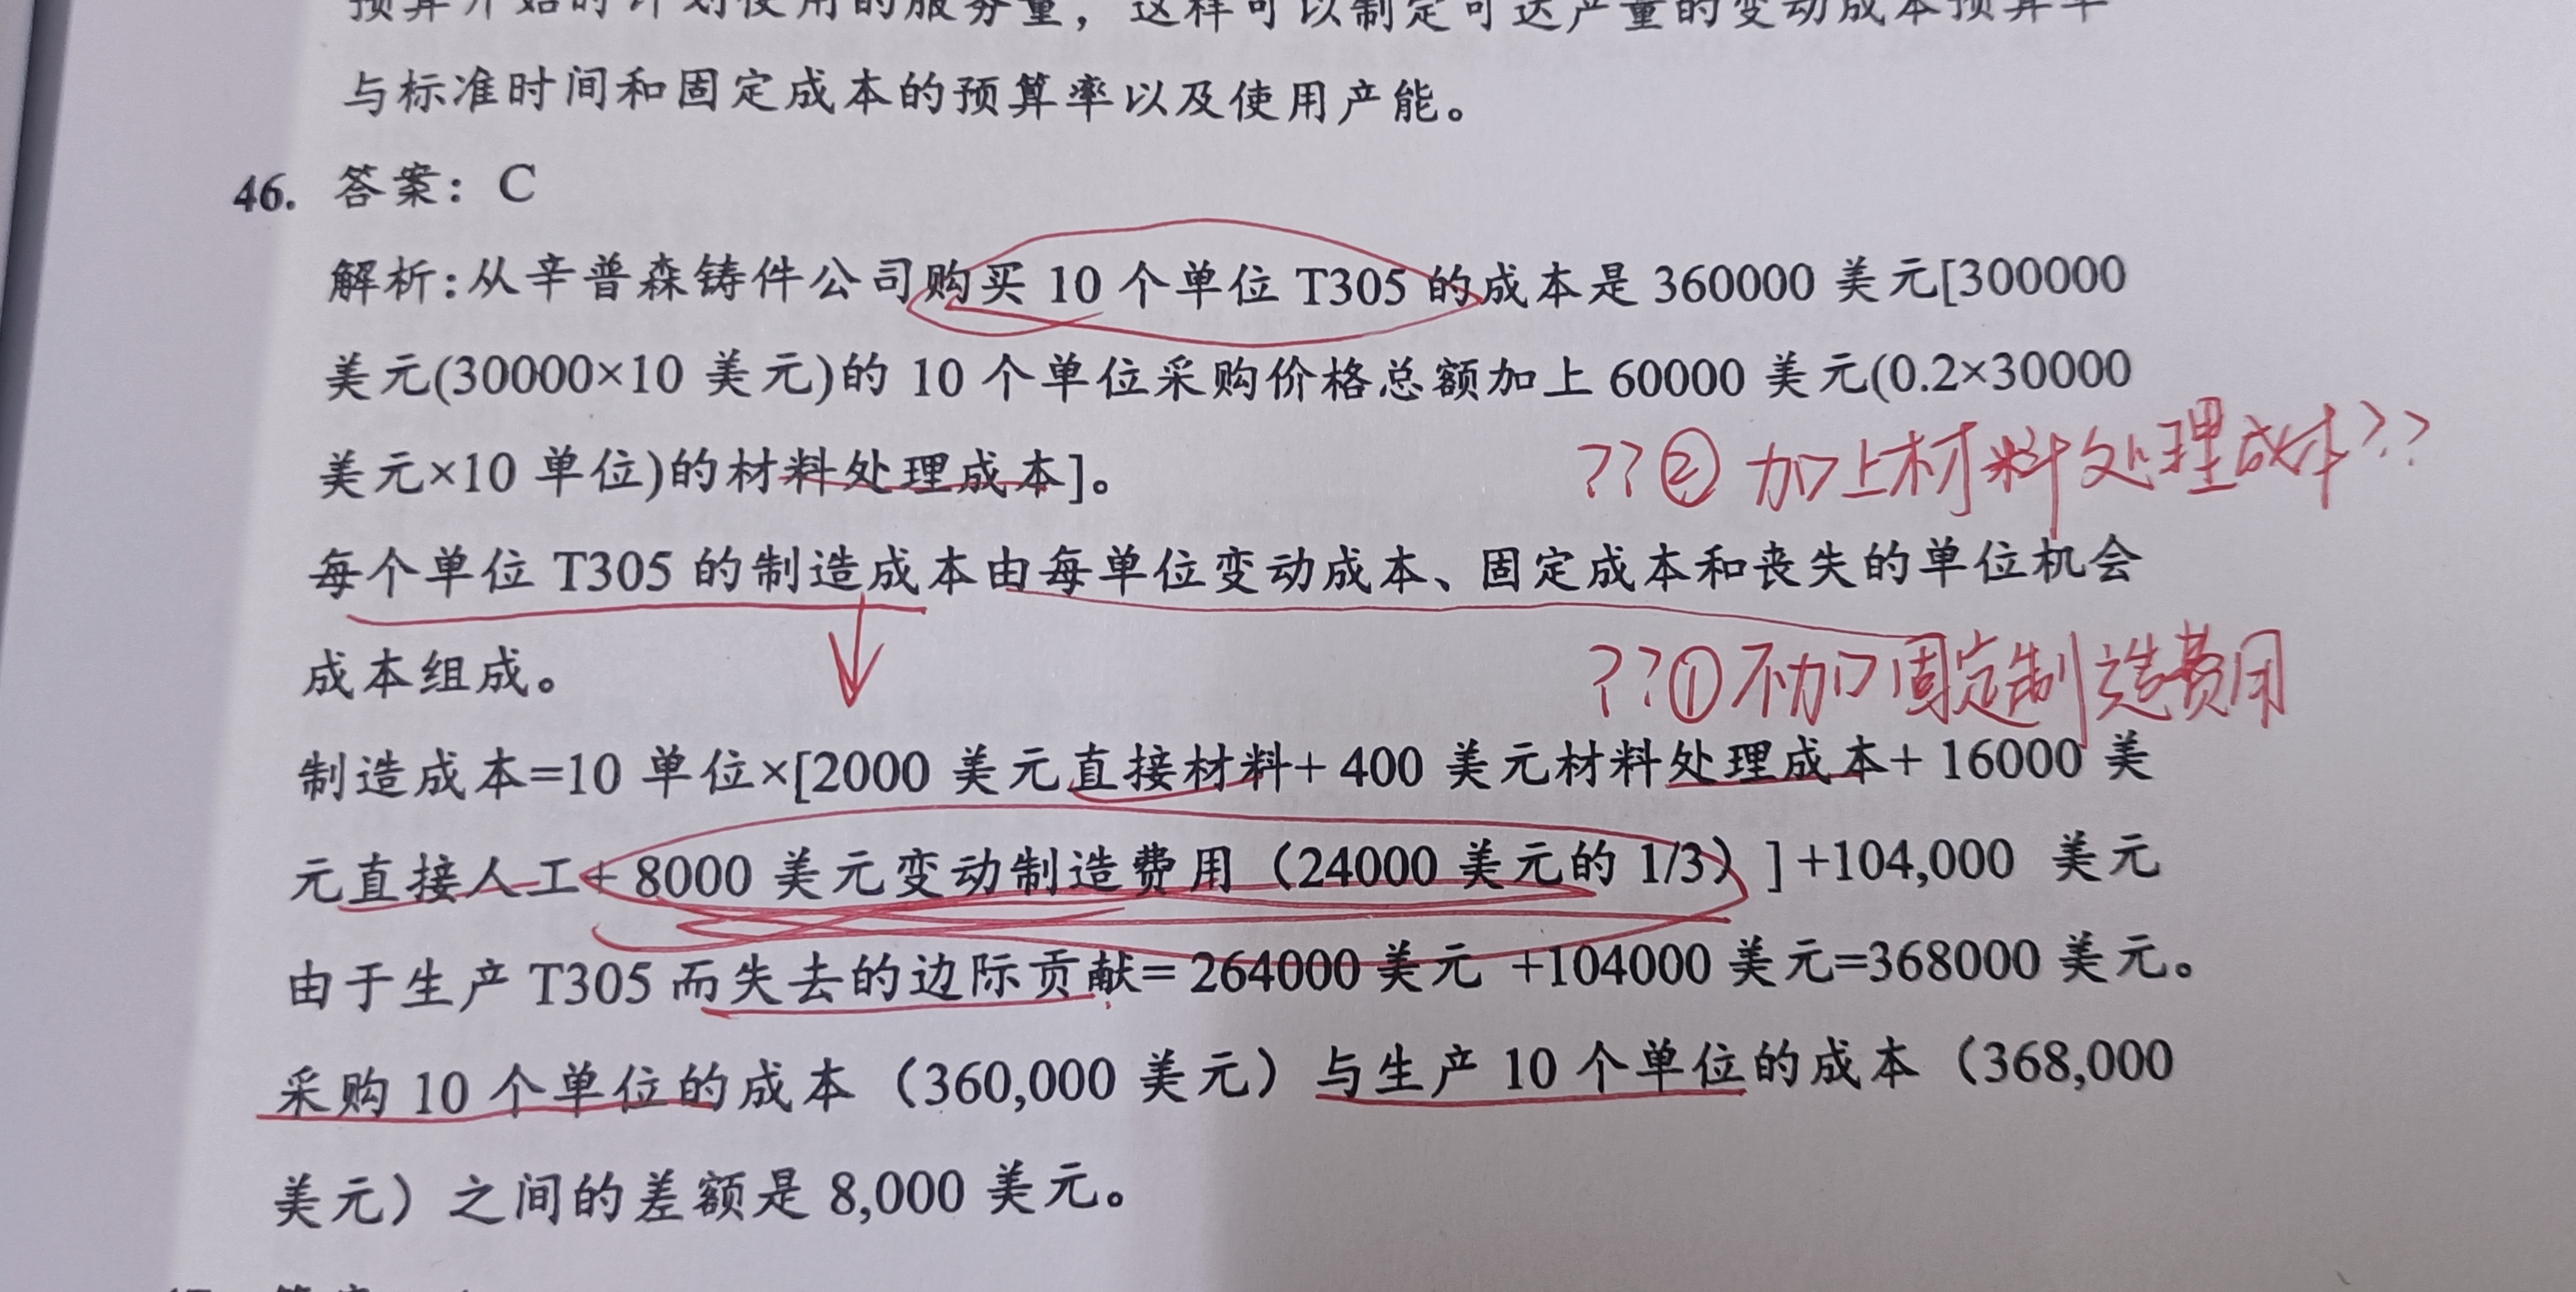 预算开始时计划使用的服务量，这样可以制定可达产量的变动成本预算率
与标准时间和固定成本的预算率以及使用产能。
46. 答案：C
解析:从辛普森铸件公司购买 10 个单位 T305 的成本是 360000 美元[300000
美元(30000×10 美元)的 10 个单位采购价格总额加上 60000 美元(0.2×30000
美元×10 单位)的材料处理成本]。
??② 加上材料处理成本??
每个单位 T305 的制造成本由每单位变动成本、固定成本和丧失的单位机会
成本组成。
??①不加固定制造费用
制造成本=10 单位×[2000 美元直接材料+ 400 美元材料处理成本+ 16000 美
元直接人工+ 8000 美元变动制造费用（24000 美元的 1/3）]+104,000 美元
由于生产 T305 而失去的边际贡献= 264000 美元 +104000 美元=368000 美元。
采购 10 个单位的成本（360,000 美元）与生产 10 个单位的成本（368,000
美元）之间的差额是 8,000 美元。